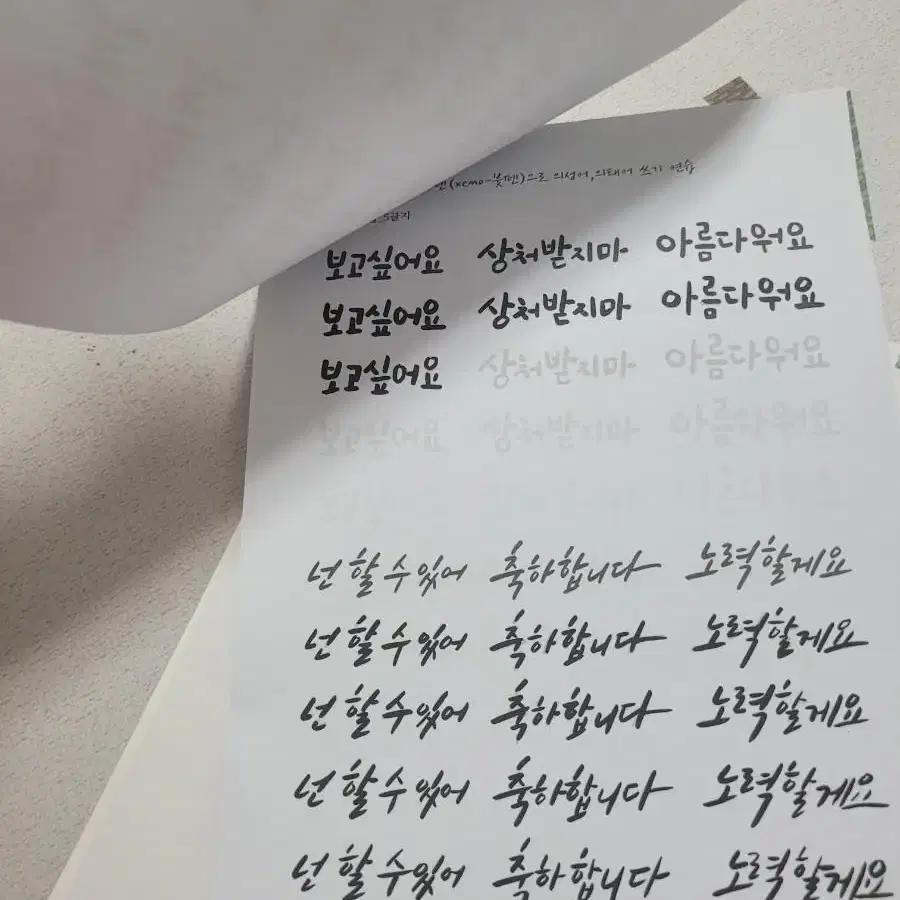 (xeno-붓펜)으로 의성어,의태어 쓰기 연습
5글자
보고싶어요 상처받지마 아름다워요
보고싶어요 상처받지마 아름다워요
보고싶어요 상처받지마 아름다워요
보고싶어요 상처받지마 아름다워요
넌 할 수 있어 축하합니다 노력할게요
넌 할 수 있어 축하합니다 노력할게요
넌 할 수 있어 축하합니다 노력할게요
넌 할 수 있어 축하합니다 노력할게요
넌 할 수 있어 축하합니다 노력할게요